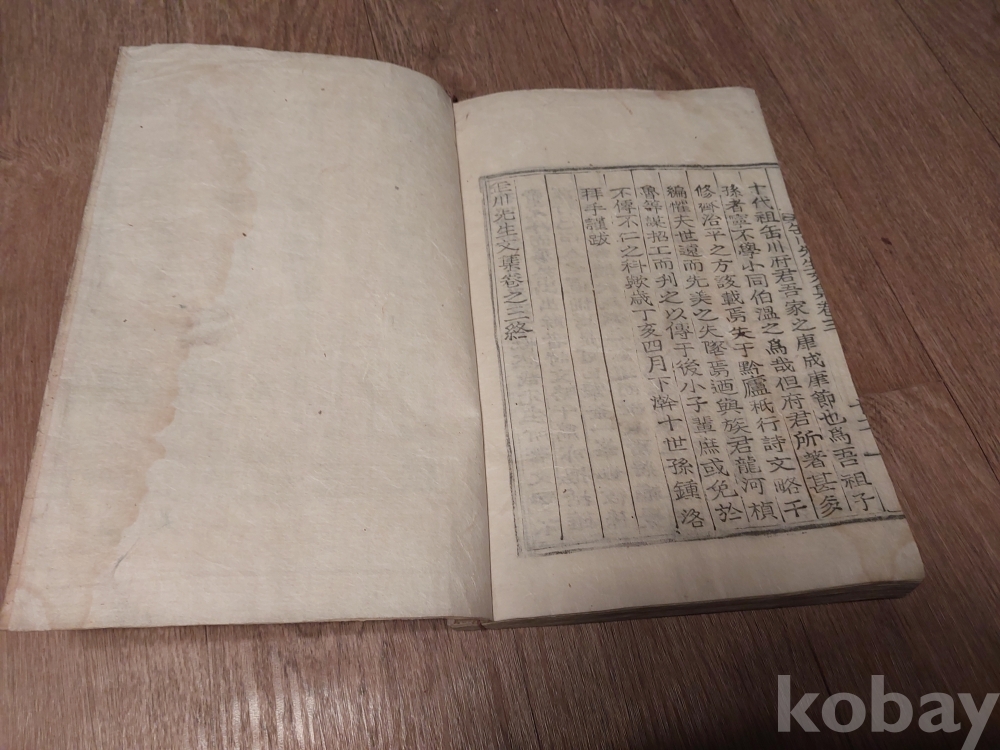 十代祖缶川府君吾家之康成康節也爲吾祖子
孫者寧不學小同伯溫之爲哉但府君所著甚多
修齊治平之方該載焉失于黔廬秪行詩文略干
編懼夫世遠而先美之失墜焉迺與族君龍河楨
魯等謀招工而刋之以傳于後小子輩庶或免於
不傳不仁之科歟歲丁亥四月下澣十世孫鍾洛
拜手謹跋
缶川先生文集卷之三終
kobay